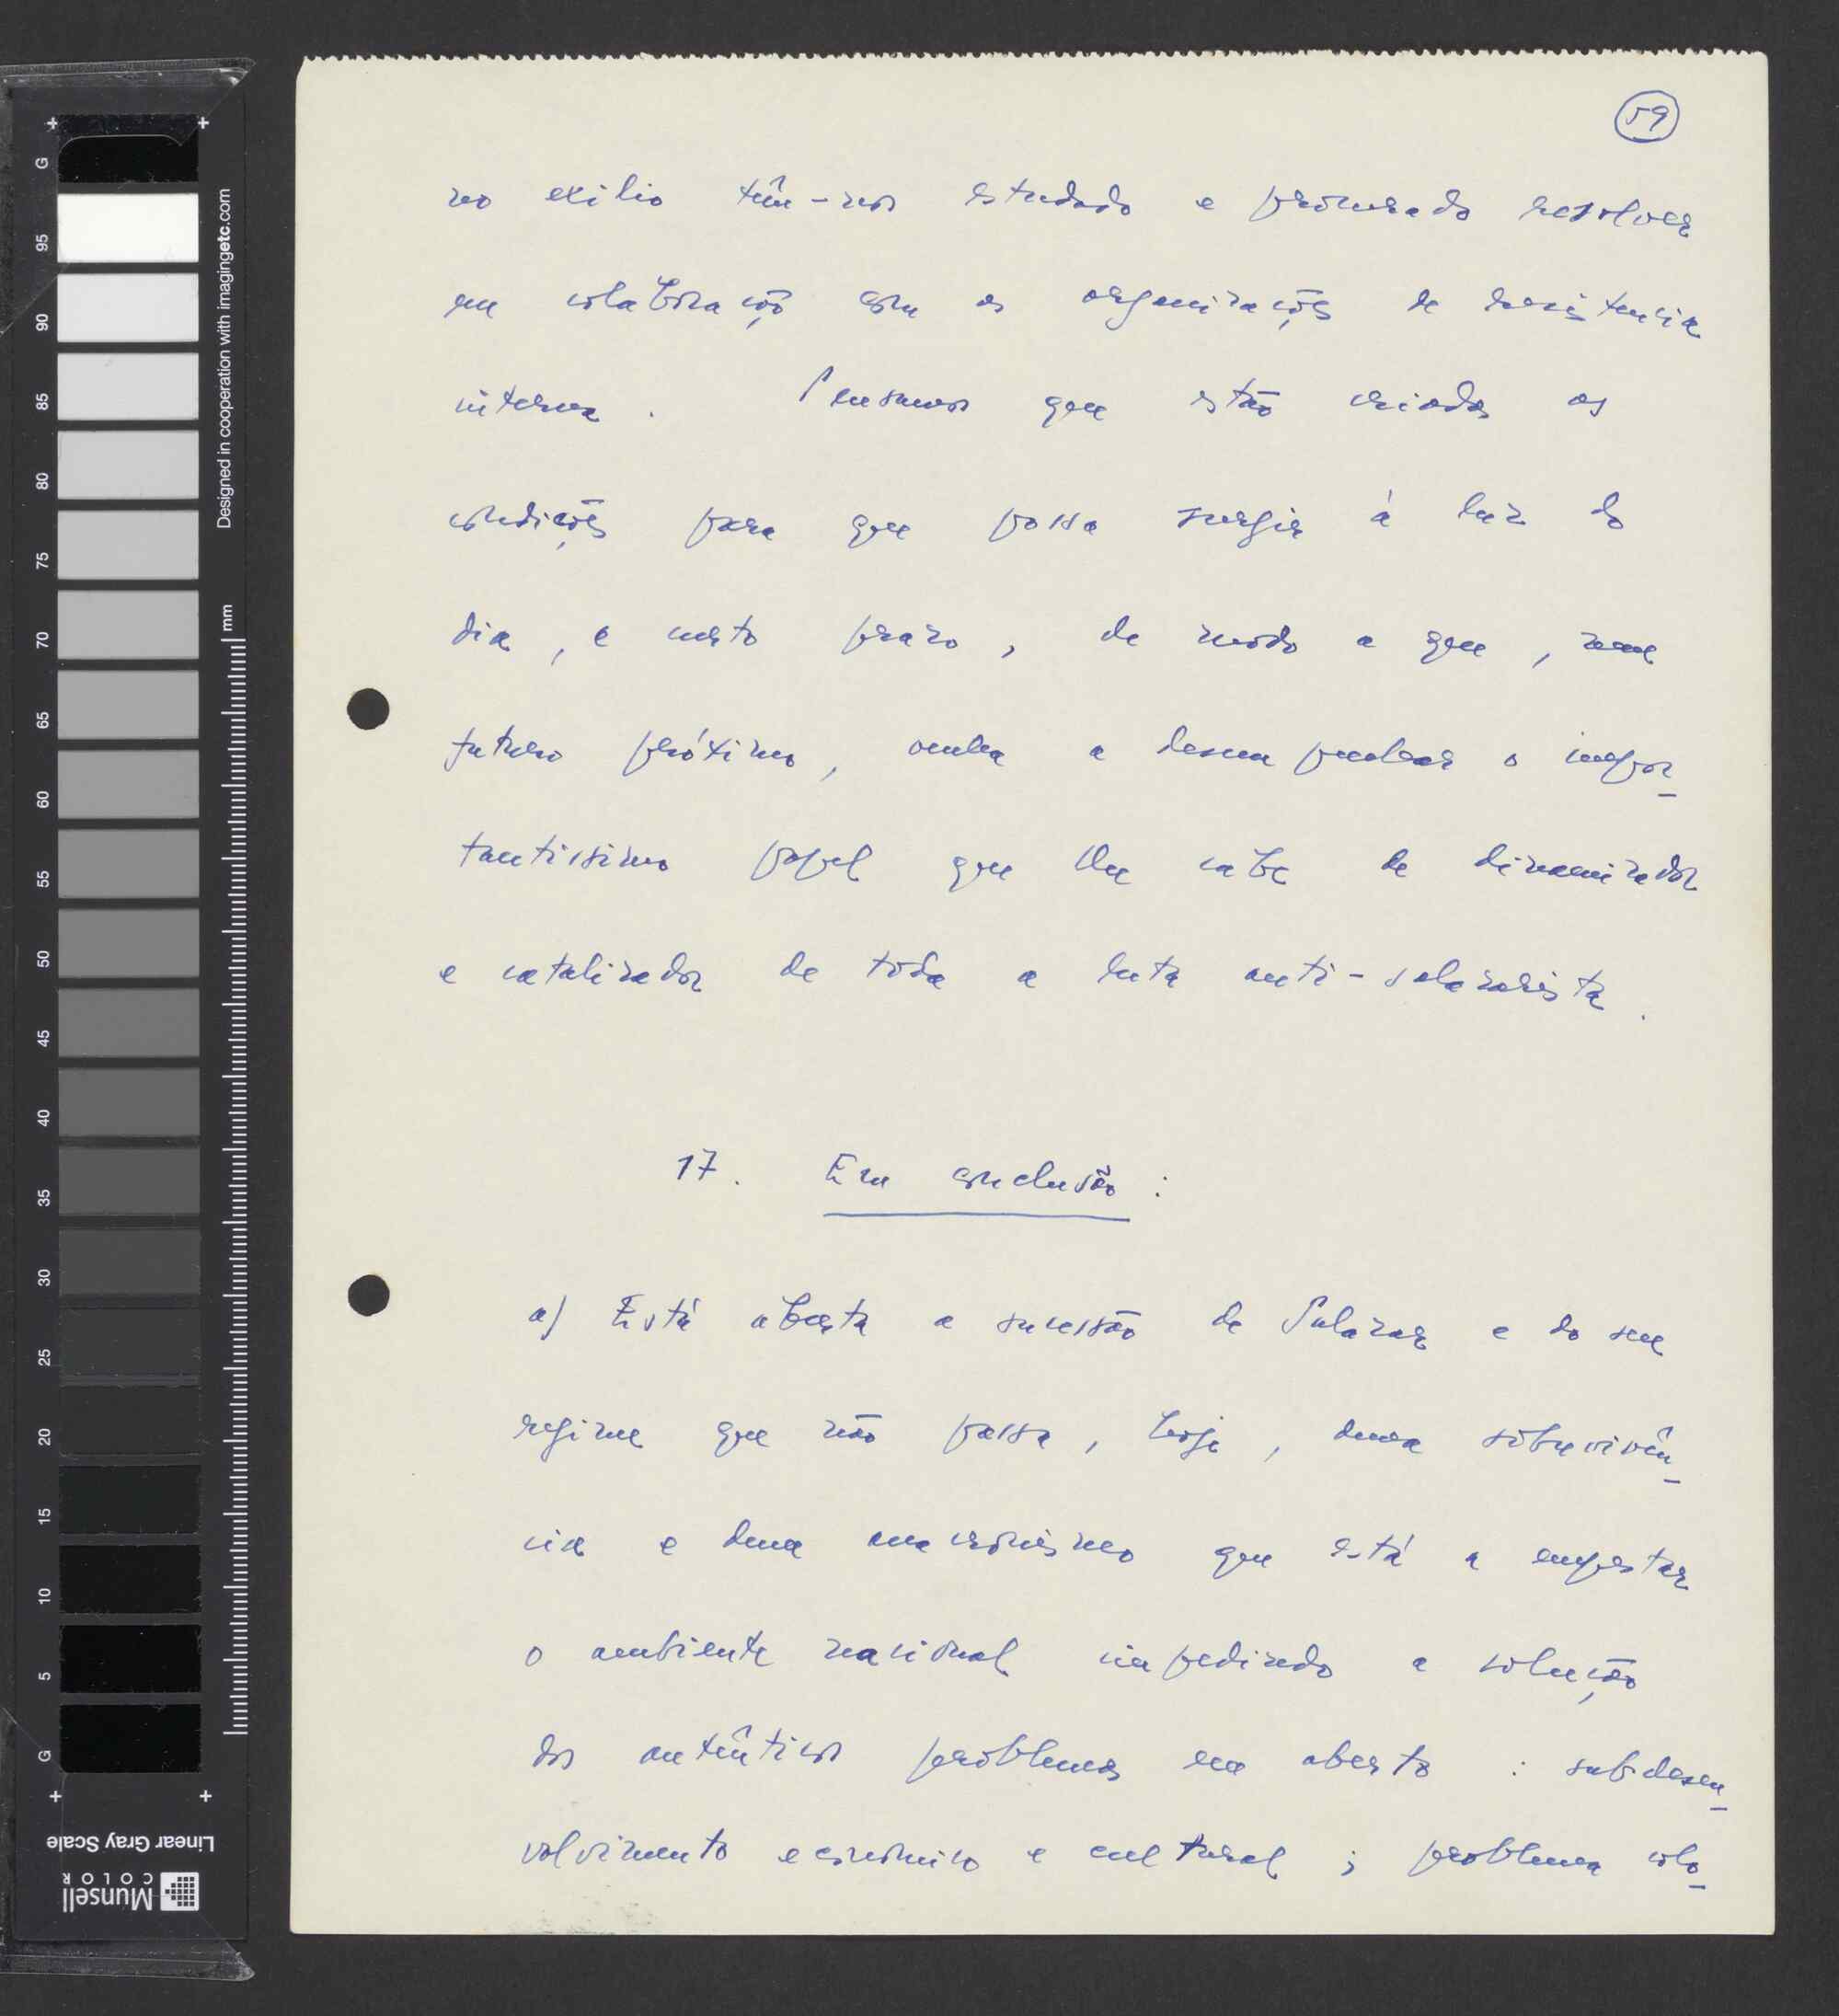 59
no exílio têm-nos estudado e procurado resolver
em colaboração com as organizações de resistencia
interna. Pensamos que estão criadas as
condições para que possa surgir à luz do
dia, e a curto prazo, de modo a que, num
futuro próximo, venha a desempenhar o impor_
tantissimo papel que lhe cabe de dinamizador
e catalizador de tôda a luta anti-salazarista.
17. Em conclusão:
a) Está aberta a sucessão de Salazar e do seu
regime que não passa, hoje, duma sôbrevivên_
cia e dum anacronismo que está a empestar
o ambiente nacional impedindo a solução
dos autênticos problemas em aberto: subdesen_
volvimento económico e cultural; problema colo_
Designed in cooperation with imagingetc.com
mm
G 95 90 85 80 75 70 65 60 55 50 45 40 35 30 25 20 15 10 5 G
Linear Gray Scale
Munsell
COLOR